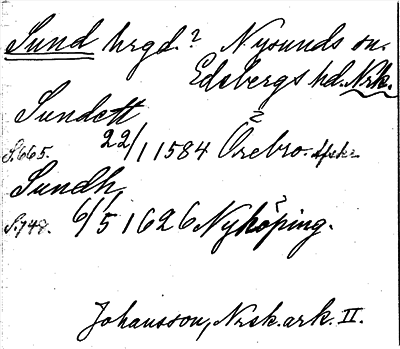 Sund hrgd.? Nysunds sn.
Edsbergs hd. Nrk.
Sundett
S. 665. 22/1 1584 Örebro. Afskr.
Sundh
S. 748. 6/5 1626 Nyköping.
Johansson, Nrsk. ark. II.